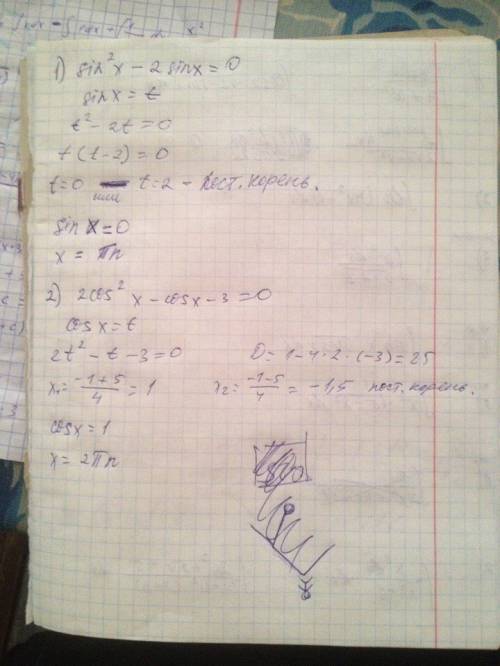 1) sin²x - 2 sinx = 0
sinx = t
t² - 2t = 0
t(t-2) = 0
t=0 или t=2 - пост. корень.
sin x = 0
x = πn
2) 2cos²x - cosx - 3 = 0
cosx = t
2t² - t - 3 = 0 D = 1 - 4·2·(-3) = 25
x₁ = (-1+5)/4 = 1 x₂ = (-1-5)/4 = -1,5 пост. корень.
cosx = 1
x = 2πn